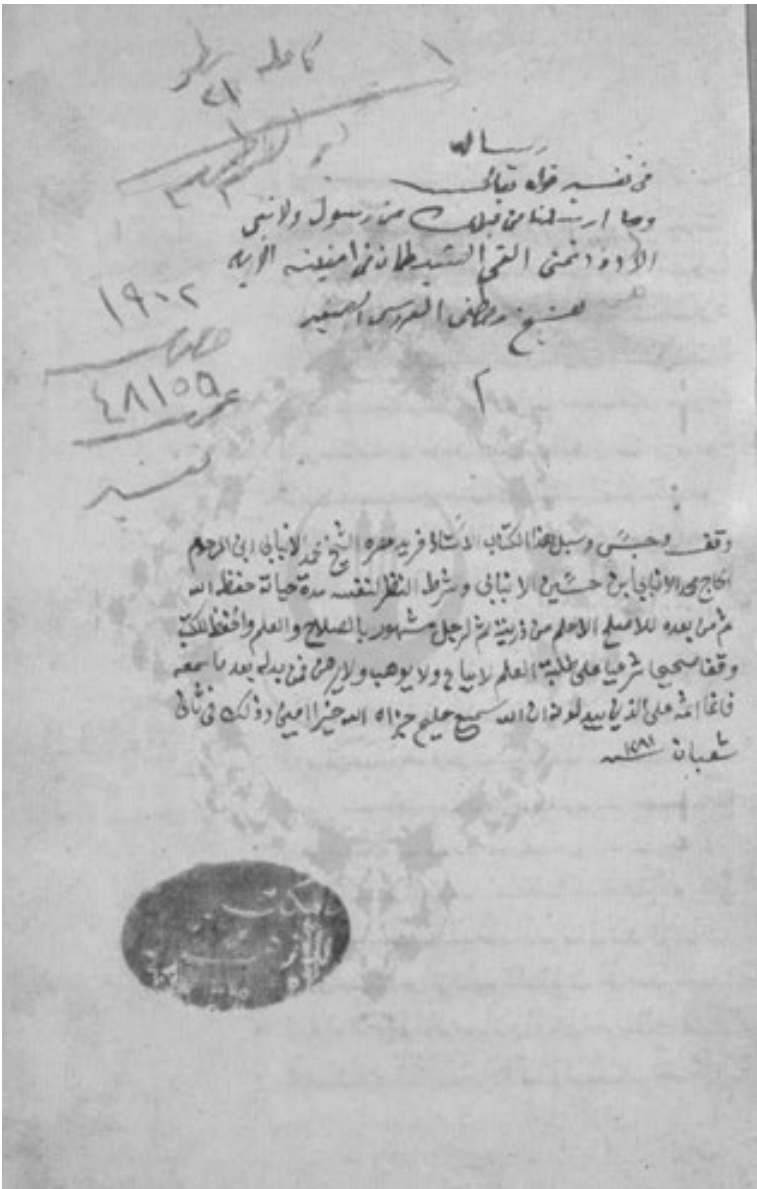 كامله
٢١
رسالة
فى تفسير قوله تعالى
وما ارسلنا من قبلك من رسول ولا نبى
الا اذا تمنى القى الشيطان فى امنيته الآيه
للشيخ مصطفى العروسى الصغير
١٩٠٢
٤٨١٥٥
تفسير
٢
وقف وحبس وسبل هذا الكتاب الاستاذ فريد عصره الشيخ محمد الانبابى ابن المرحوم
الحاج محمد الانبابى ابن حسين الانبابى وشرط النظر لنفسه مدة حياته حفظه الله
ثم من بعده للاصلح الاعلم من ذريته ثم لرجل مشهور بالصلاح والعلم واحفظ للكتب
وقفا صحيحا شرعيا على طلبة العلم لا يباع ولا يوهب ولا يرهن فمن بدله بعد ما سمعه
فانما اثمه على الذين يبدلونه ان الله سميع عليم جزاه الله خيرا امين وذلك فى ثانى
شعبان ١٢٨١ سنه